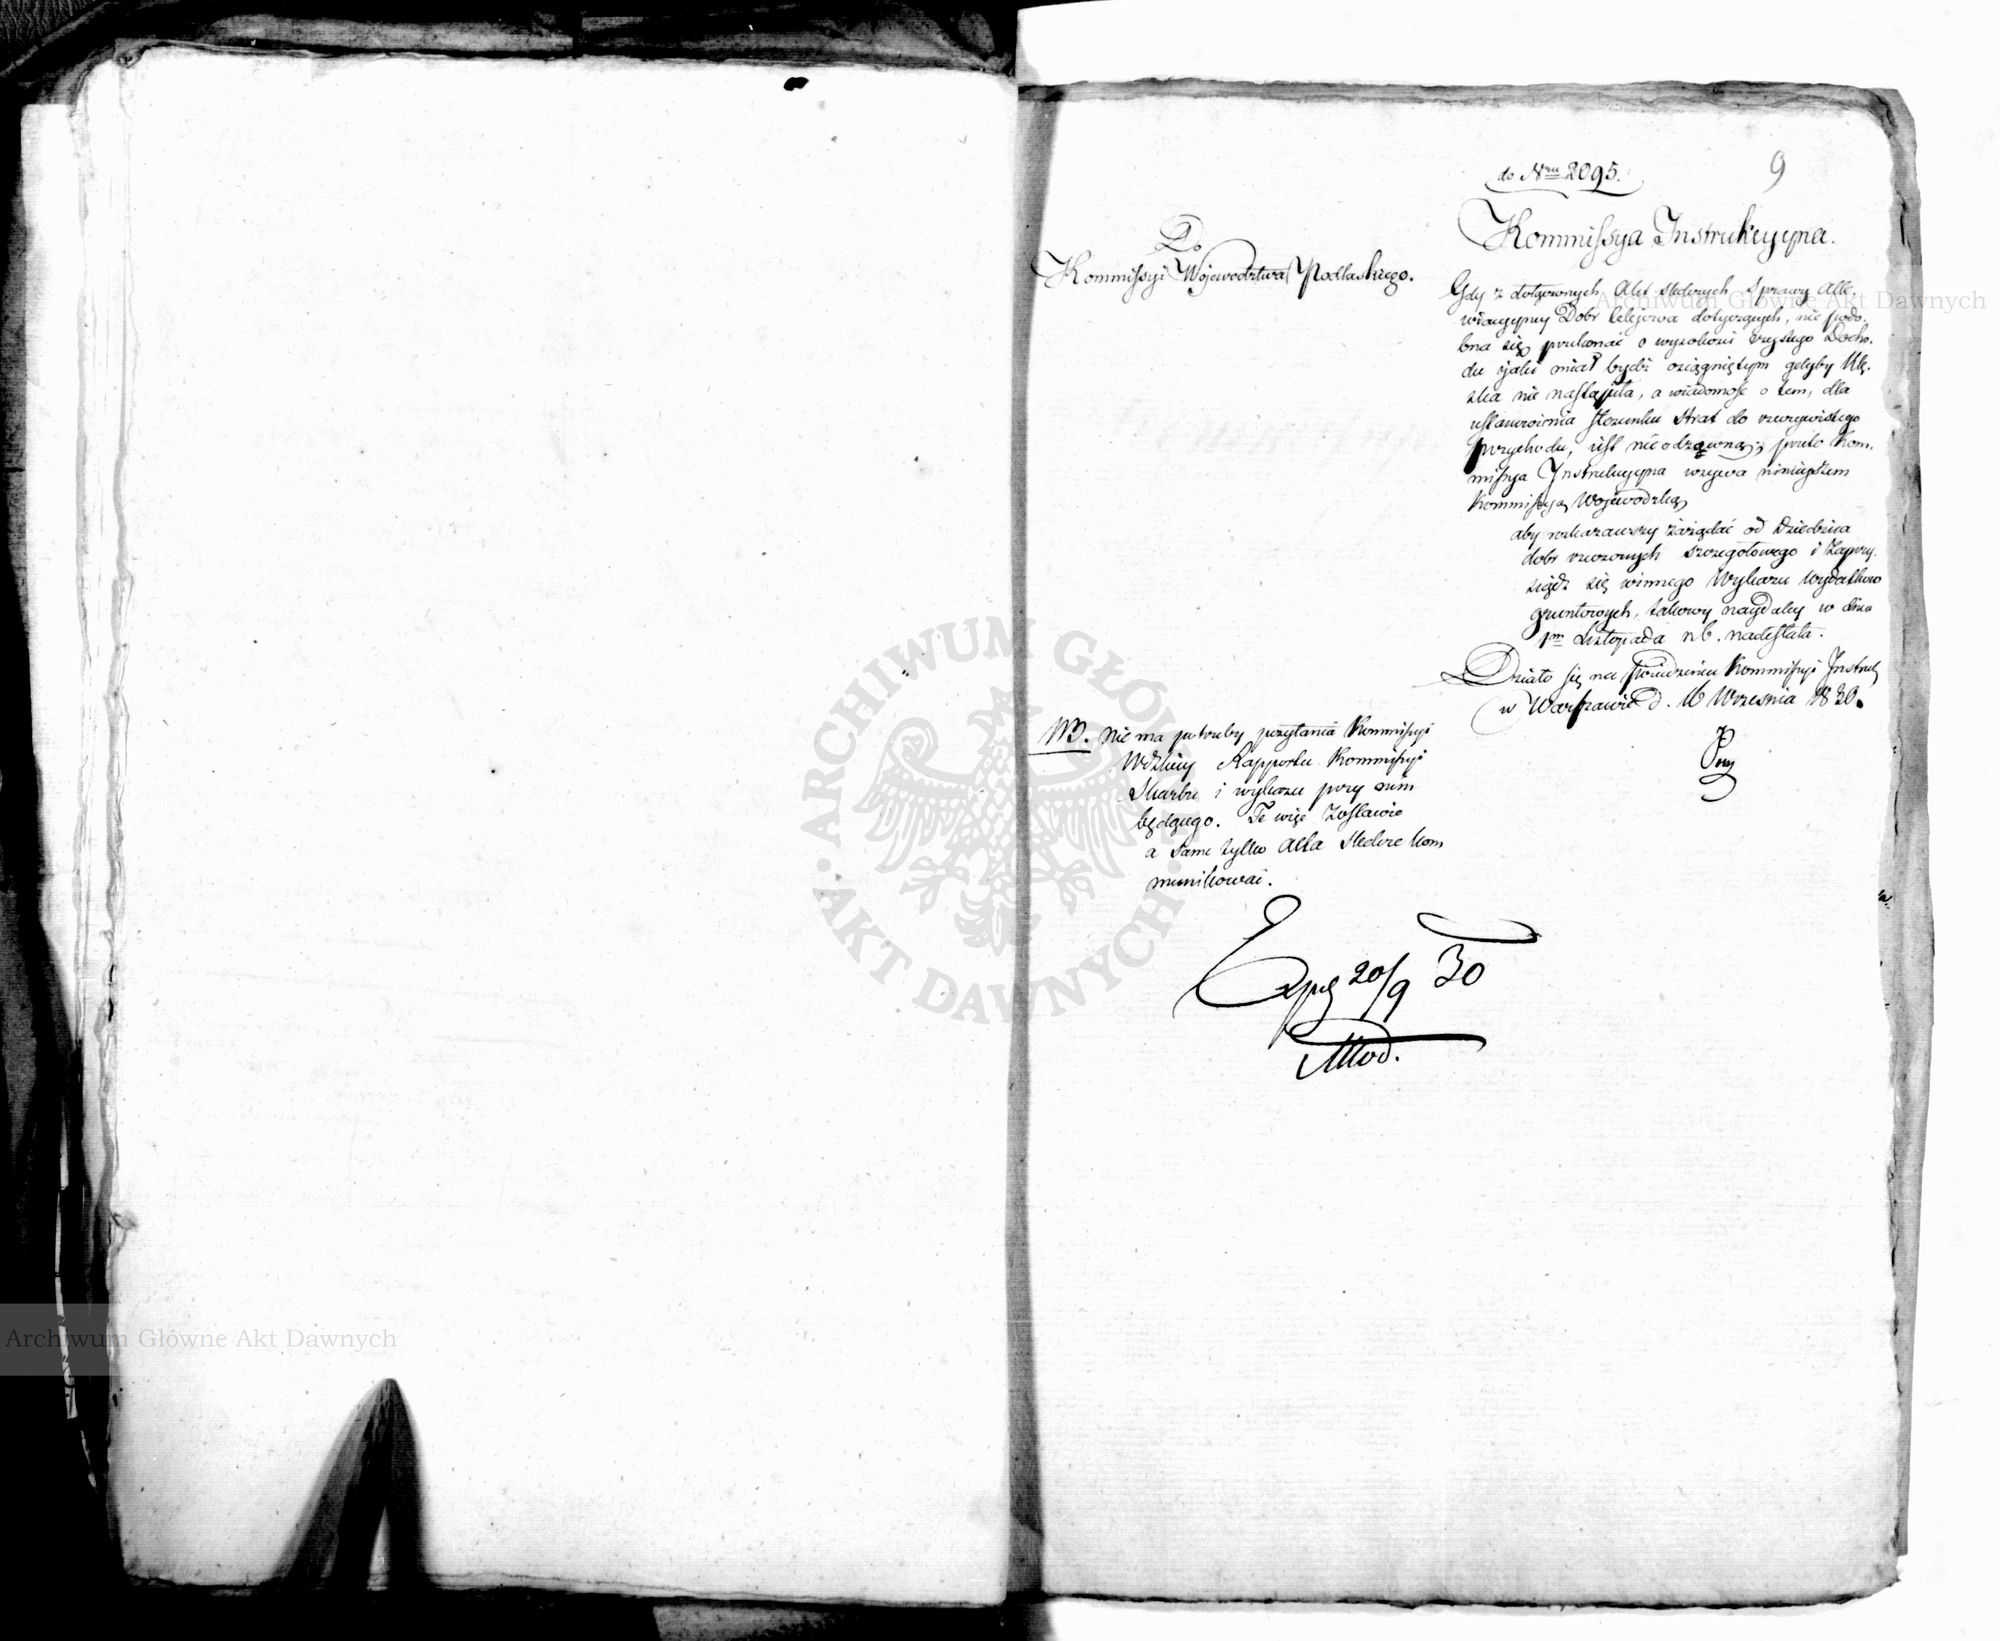 9
do Nru 2095.
Kommissya Instrukcyyna.
Do
Kommissyi Województwa Podlaskiego.
Gdy z dołączonych Akt śledczych Sprawy Alle-
wiacyyney Dobr dotyczących, nie podo-
bna się przekonać o wysokości czystego Docho-
du jaki miał bydź osiągniętym gdyby Klę-
ska nie nastąpiła, a wiadomość o tem, dla
ustanowienia stosunku strat do rzeczywistego
przychodu, jest nieodzowną; przeto Kom-
missya Instrukcyyna wzywa ninieyszem
Kommissyą Wojewodzką
aby zażądać od Dziedzica
dobr rzeczonych szczegołowego i Zaprzy-
siądz się winnego Wykazu wydatkow
gruntowych, takowy naydaley w dniu
1m Listopada r.b. nadesłała.
Działo się na posiedzeniu Kommissyi Instruk
w Warszawie d. 16 Września 1830.
NB. nie ma potrzeby przysłania Kommissyi
Wdzkiey Rapportu Kommissyi
Skarbu i wykazu przy nim
będącego. Te więc Zostawić
a same tylko Akta śledcze kom
munikować.
Exped 20/9 30
Archiwum Główne Akt Dawnych
Archiwum Główne Akt Dawnych
ARCHIWUM GŁÓWNE
AKT DAWNYCH